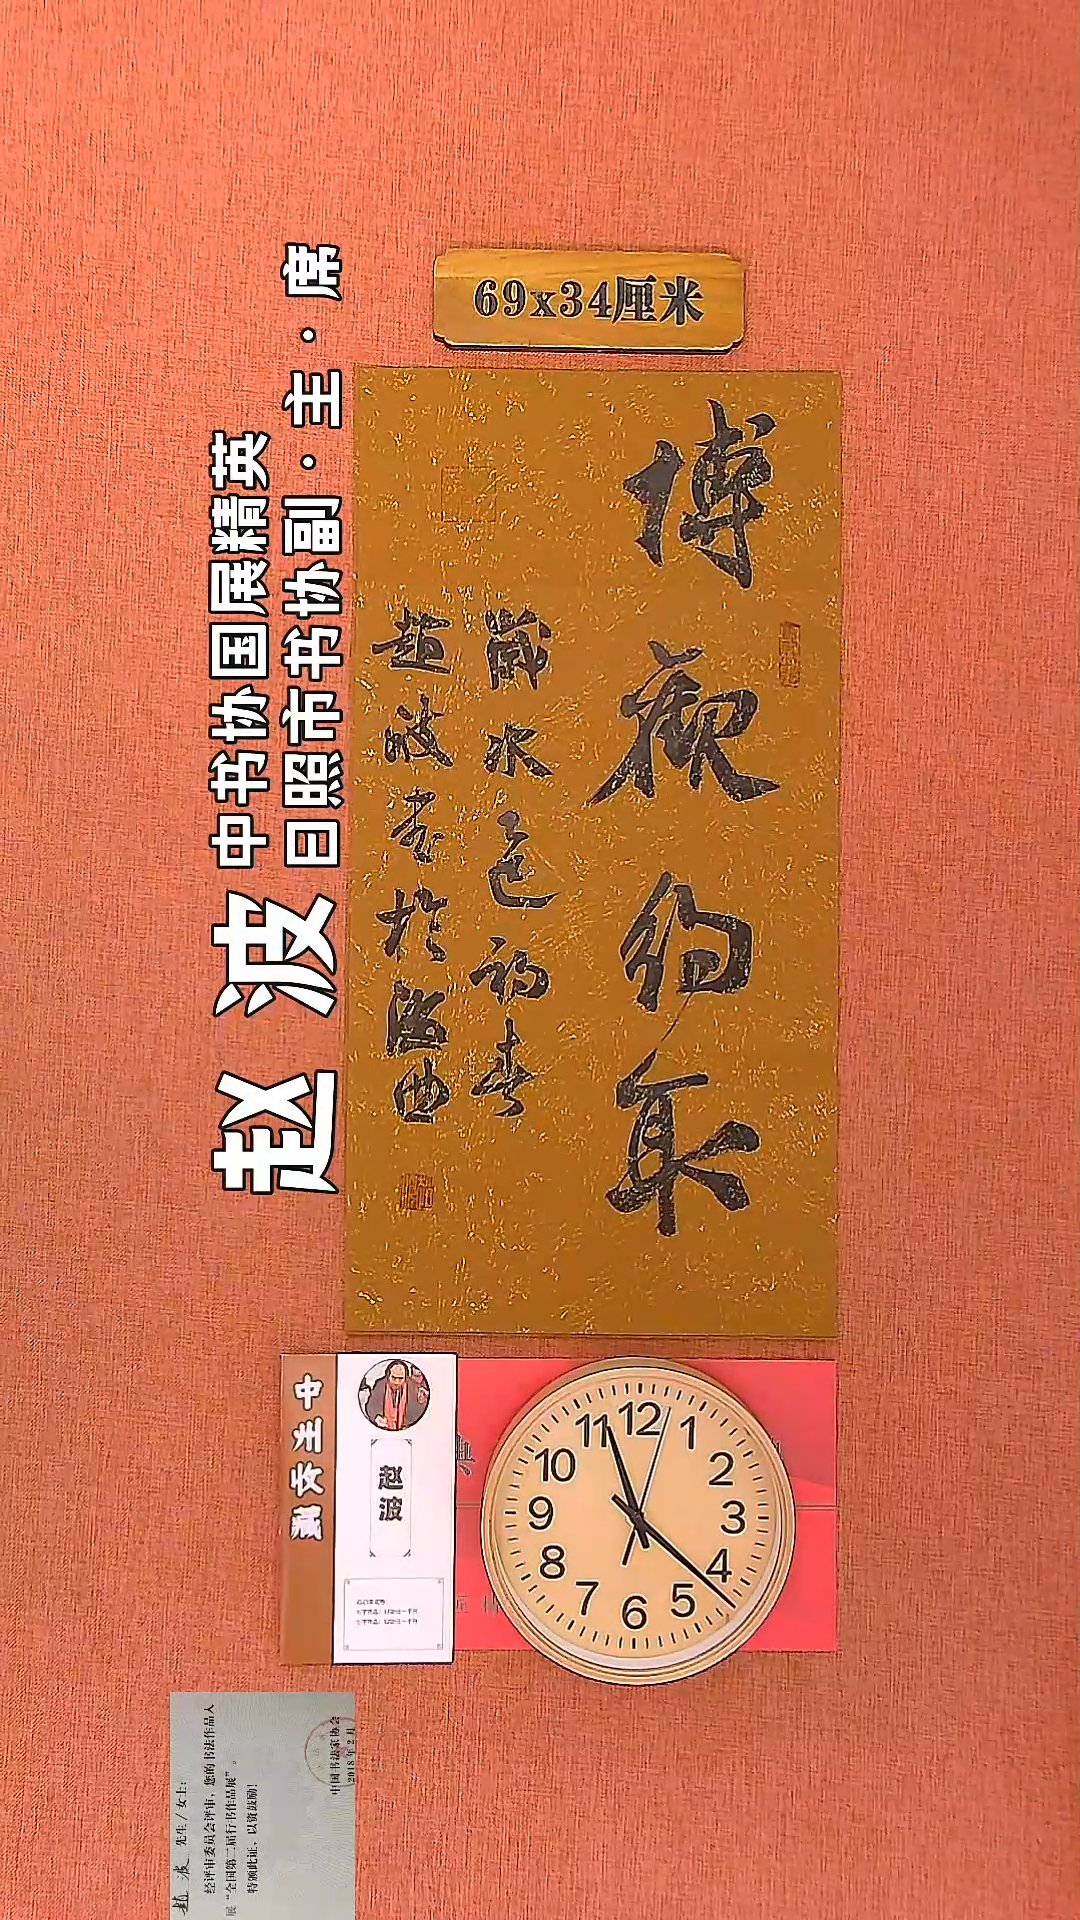 69x34厘米
博觀約取
歲次乙巳初春
趙波書於海曲
赵 波
中书协国展精英
日照市书协副·主·席
中生安藏
赵波
12
1
2
3
4
5
6
7
8
9
10
11
趙波 先生/女士:
经评审委员会评审,您的书法作品入
展“全国第二届行书作品展”。
特颁此证,以资鼓励!
中国书法家协会
2018年2月